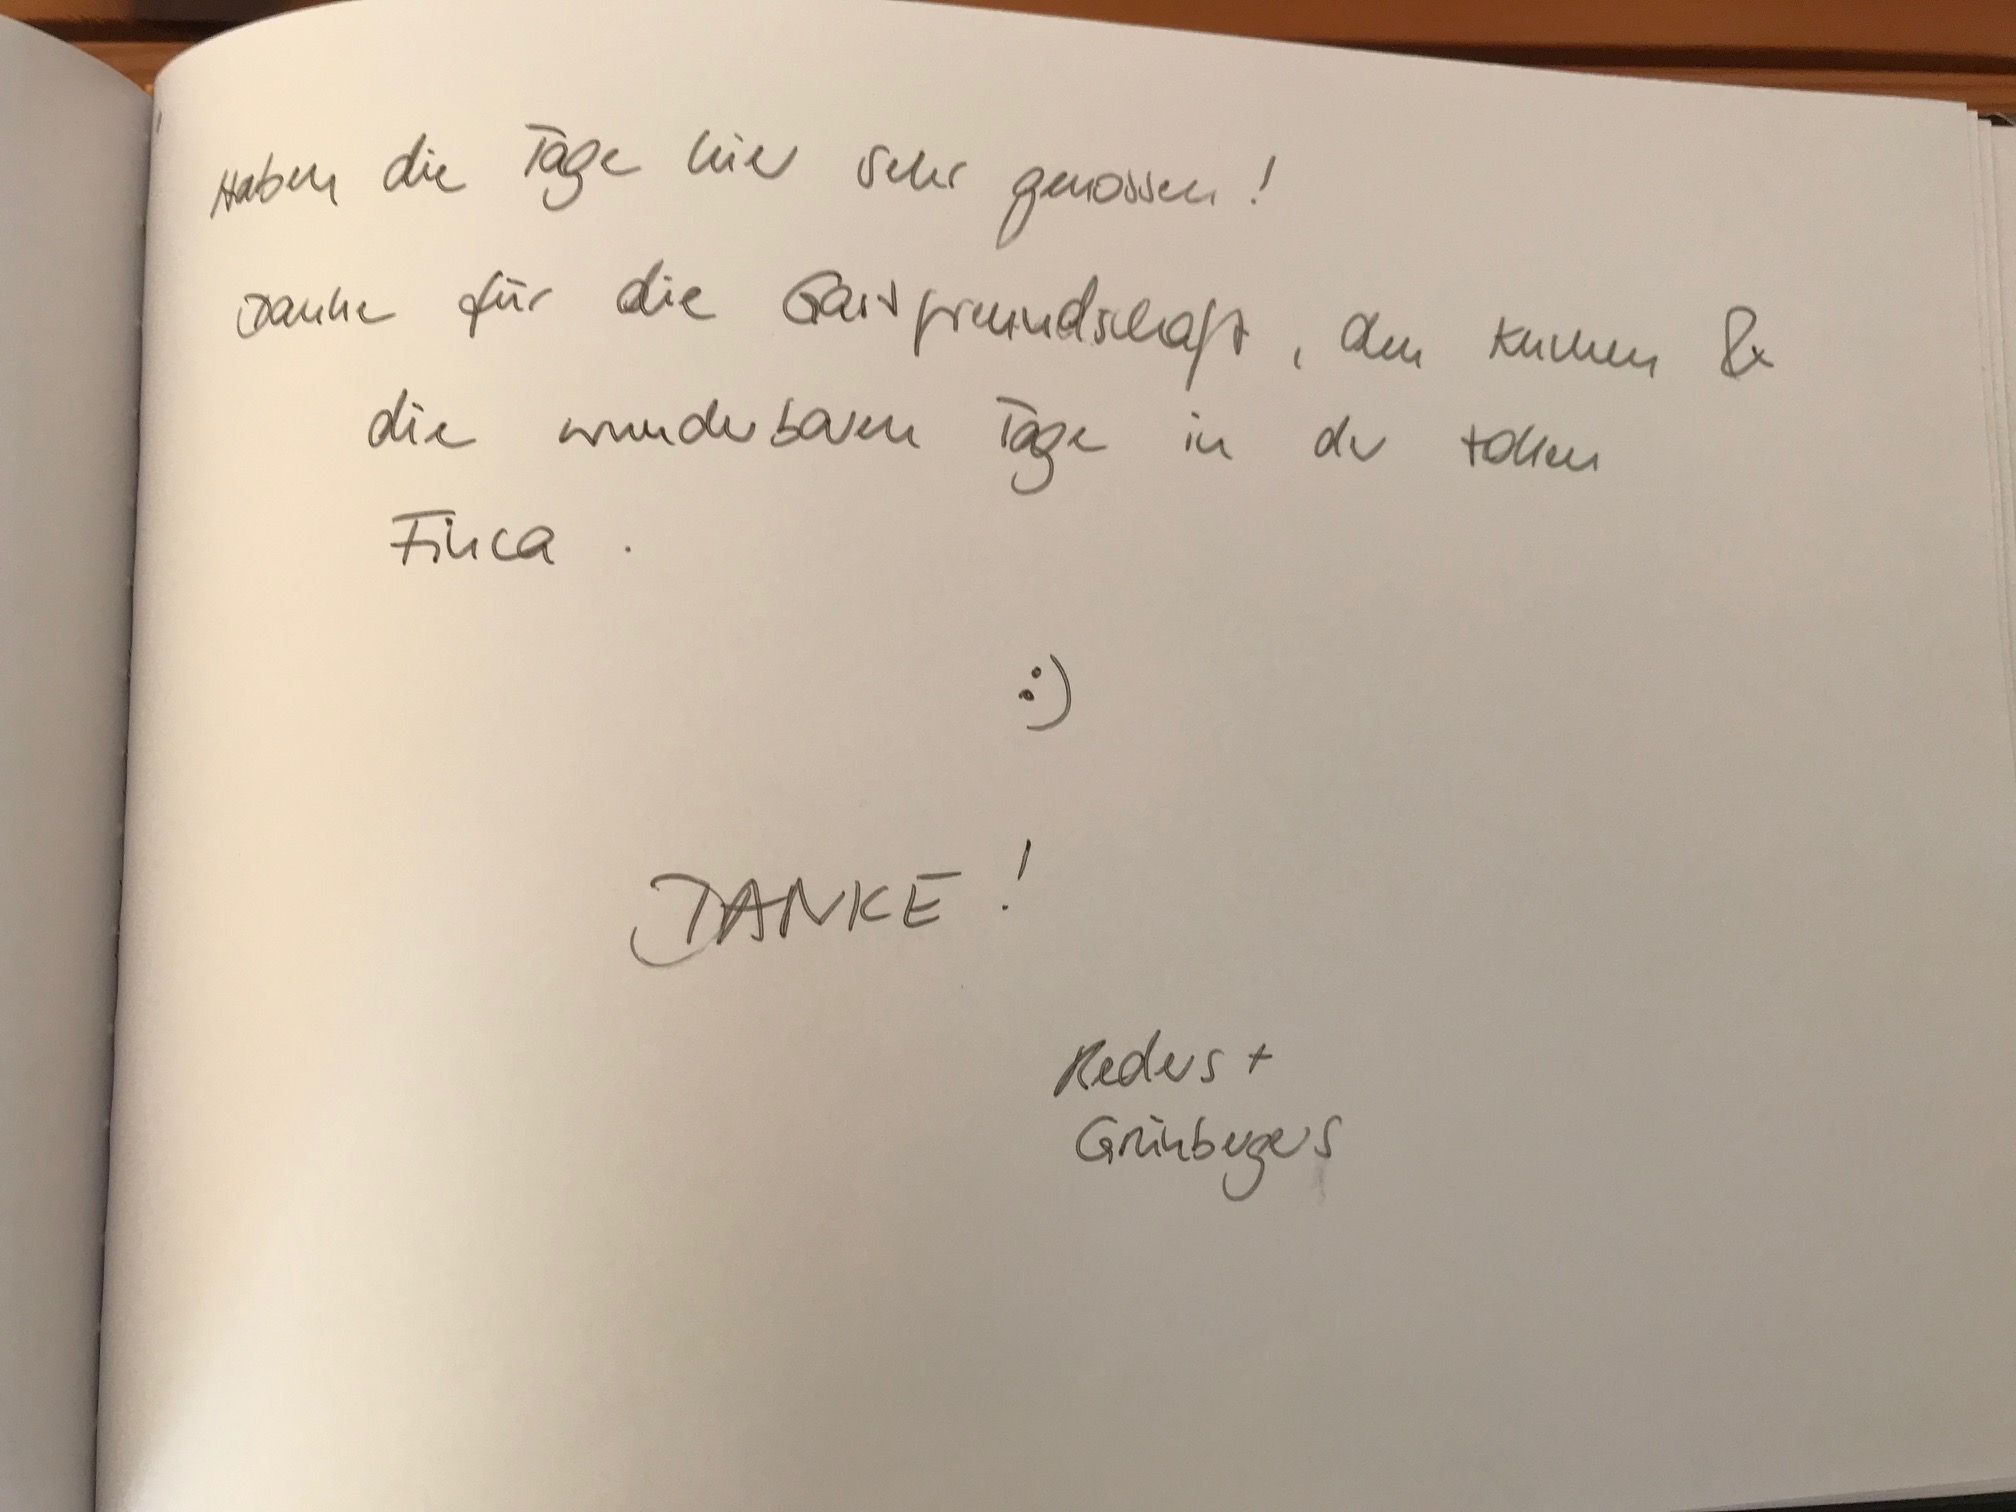 Haben die Tage hier sehr genossen!
Danke für die Gastfreundschaft, den Kuchen &
die wunderbaren Tage in der tollen
Finca.
:)
DANKE!
Reders +
Grünbergers